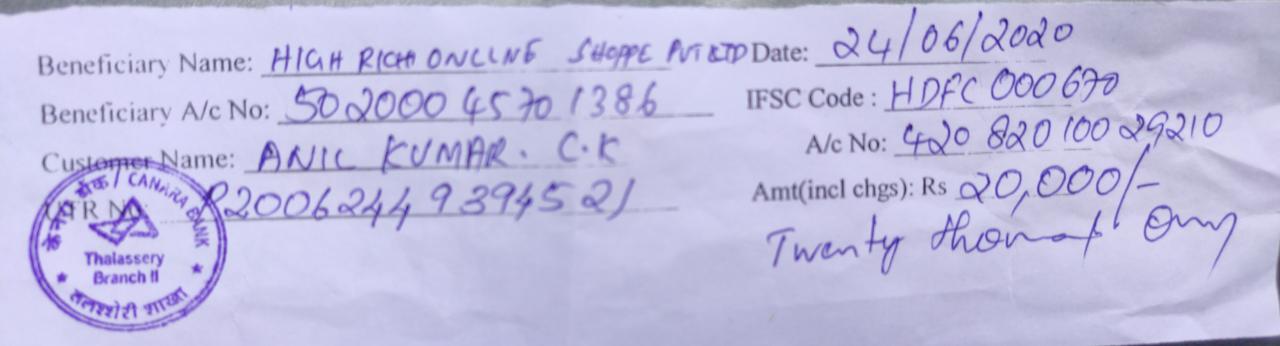 Beneficiary Name: HIGH RICH ONLINE SHOPPE PVT LTD Date: 24/06/2020
Beneficiary A/c No: 50200045701386 IFSC Code : HDFC 000670
Customer Name: ANIL KUMAR. C.K A/c No: 420 820 100 29210
UTR No P200624493945 21 Amt(incl chgs): Rs 20,000/-
Twenty thousand Only
केनरा बैंक / CANARA BANK
Thalassery
Branch II
तलश्शेरी शाखा